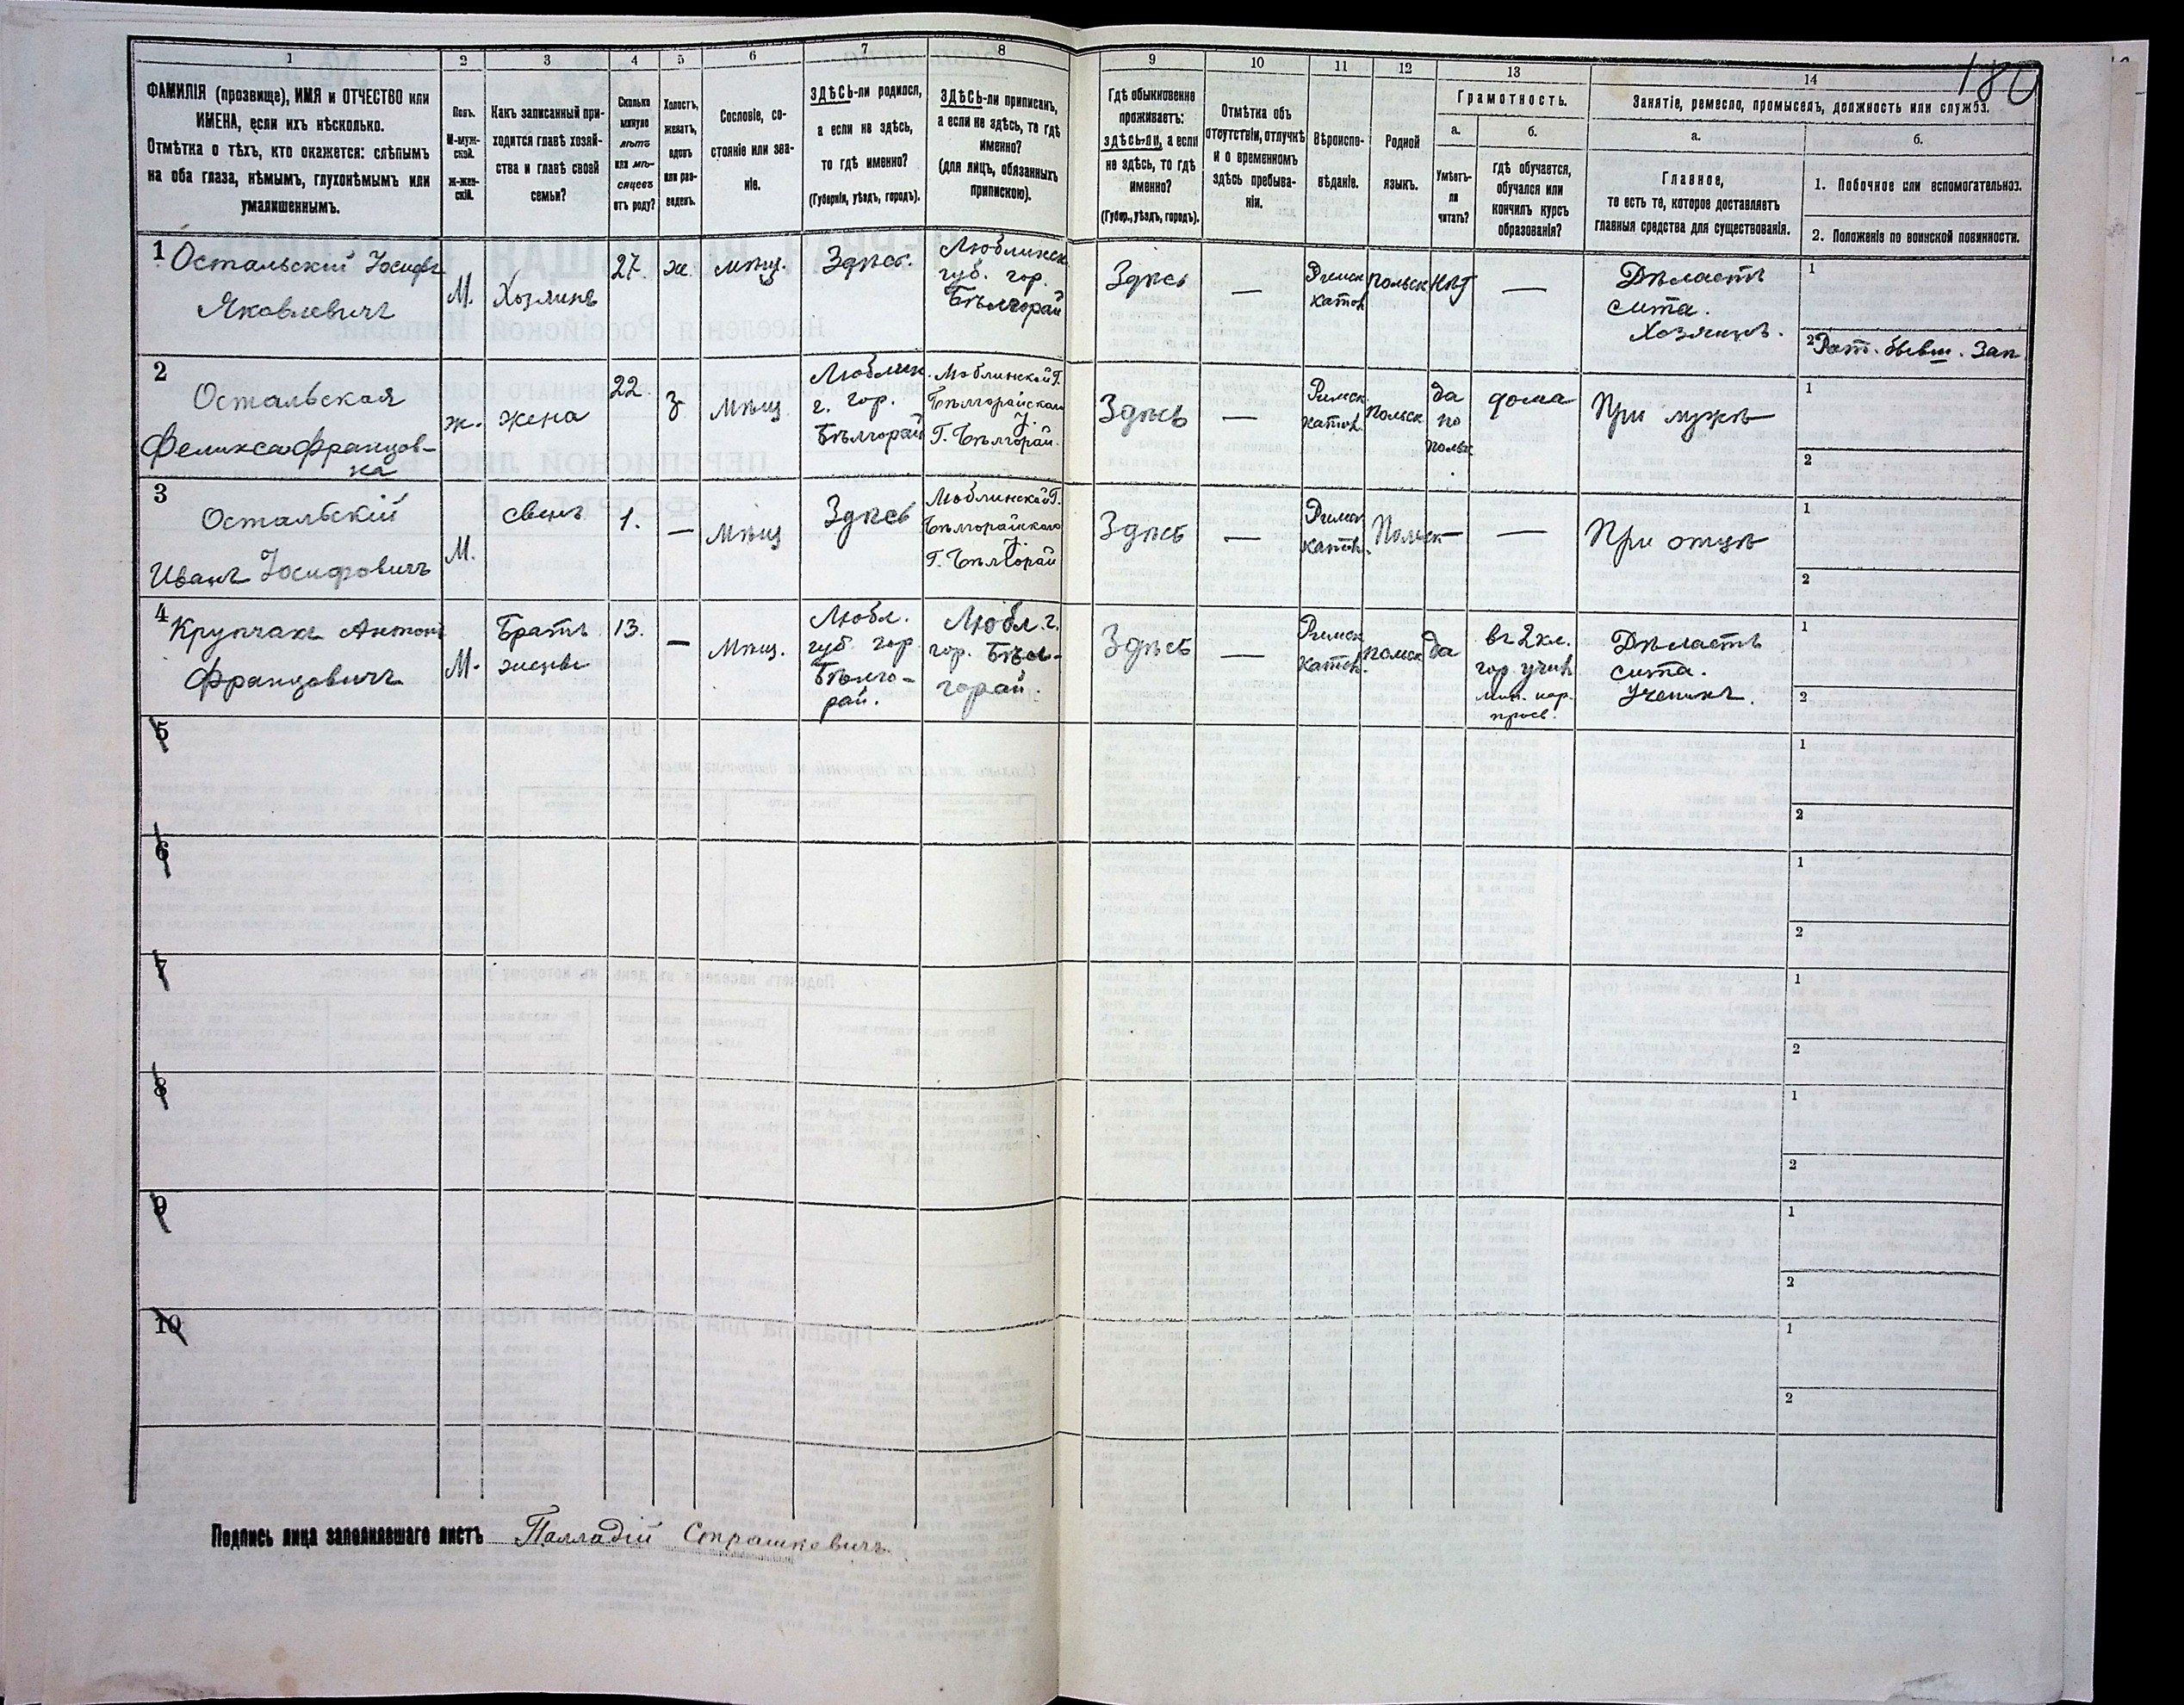 180
1
2
3
4
5
6
7
8
9
10
11
12
13
14
ФАМИЛІЯ (прозвище), ИМЯ и ОТЧЕСТВО или
ИМЕНА, если ихъ нѣсколько.
Отмѣтка о тѣхъ, кто окажется: слѣпымъ
на оба глаза, нѣмымъ, глухонѣмымъ или
умалишеннымъ.
Полъ.
М-муж-
ской.
Ж-жен-
скій.
Какъ записанный при-
ходится главѣ хозяй-
ства и главѣ своей
семьи?
Сколько
минуло
лѣтъ
или мѣ-
сяцевъ
отъ роду?
Холостъ,
женатъ,
вдовъ
или раз-
веденъ.
Сословіе, со-
стояніе или зва-
ніе.
ЗДѢСЬ-ли родился,
а если не здѣсь,
то гдѣ именно?
(Губернія, уѣздъ, городъ).
ЗДѢСЬ-ли приписанъ,
а если не здѣсь, то гдѣ
именно?
(для лицъ, обязанныхъ
припискою).
Гдѣ обыкновенно
проживаетъ:
здѣсь-ли, а если
не здѣсь, то гдѣ
именно?
(Губер., уѣздъ, городъ).
Отмѣтка объ
отсутствіи, отлучкѣ
и о временномъ
здѣсь пребыва-
ніи.
Вѣроиспо-
вѣданіе.
Родной
языкъ.
Грамотность.
а.
б.
Умѣетъ-
ли
читать?
гдѣ обучается,
обучался или
кончилъ курсъ
образованія?
Занятіе, ремесло, промыселъ, должность или служба.
а.
б.
Главное,
то есть то, которое доставляетъ
главныя средства для существованія.
1. Побочное или вспомогательное.
2. Положеніе по воинской повинности.
1
Остальский Іосифъ
Яковлевичъ
М.
Хозяинъ
27.
ж.
мѣщ.
Здѣсь.
Люблинск.
губ. гор.
Бѣлгорай
Здѣсь
—
Римск
катол
польск
нѣт
—
Дѣлаетъ
сита.
Хозяинъ.
1
2 Рат. бывш. Зап
2
Остальская
Фелиkса Францов-
на
ж.
жена
22.
з
Мѣщ
Люблин.
г. гор.
Бѣлгорай
Люблинской Г.
Бѣлгорайскаго
У.
Г. Бѣлгорай.
Здѣсь
—
Римск
катол.
польск
да
по
польс
дома
При мужѣ
1
2
3
Остальскій
Иванъ Іосифовичъ
М.
сынъ
1.
—
Мѣщ
Здѣсь
Люблинской Г.
Бѣлгорайскаго
У.
Г. Бѣлгорай
Здѣсь
—
Римск
катол.
Польск
—
—
При отцѣ
1
2
4
Крупчакъ Антонъ
Францовичъ
М.
Братъ
жены
13.
—
Мѣщ.
Любл.
губ. гор
Бѣлго-
рай.
Любл. г.
гор. Бѣл-
горай.
Здѣсь
—
Римск
катол.
польск
да
въ 2 кл.
гор. учил.
мин. нар.
просв.
Дѣлаетъ
сита.
Ученикъ.
1
2
5
1
2
6
1
2
7
1
2
8
1
2
9
1
2
10
1
2
Подпись лица заполнявшаго листъ Палладій Страшкевичъ